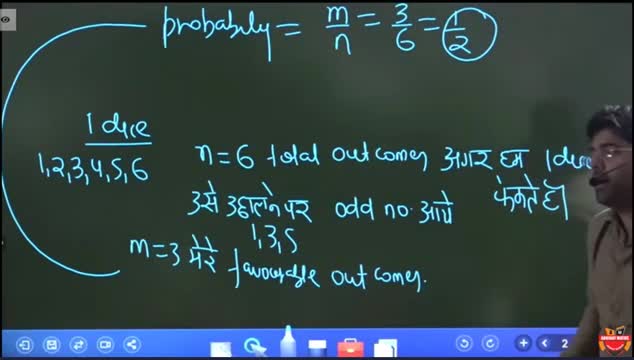 probabily = m/n = 3/6 = 1/2
1 dice
1,2,3,4,5,6
n=6 total outcomes अगर हम 1 dice फेंकते है
उसे उछालने पर odd no. आये
1,3,5
m=3 favourable outcomes.
2